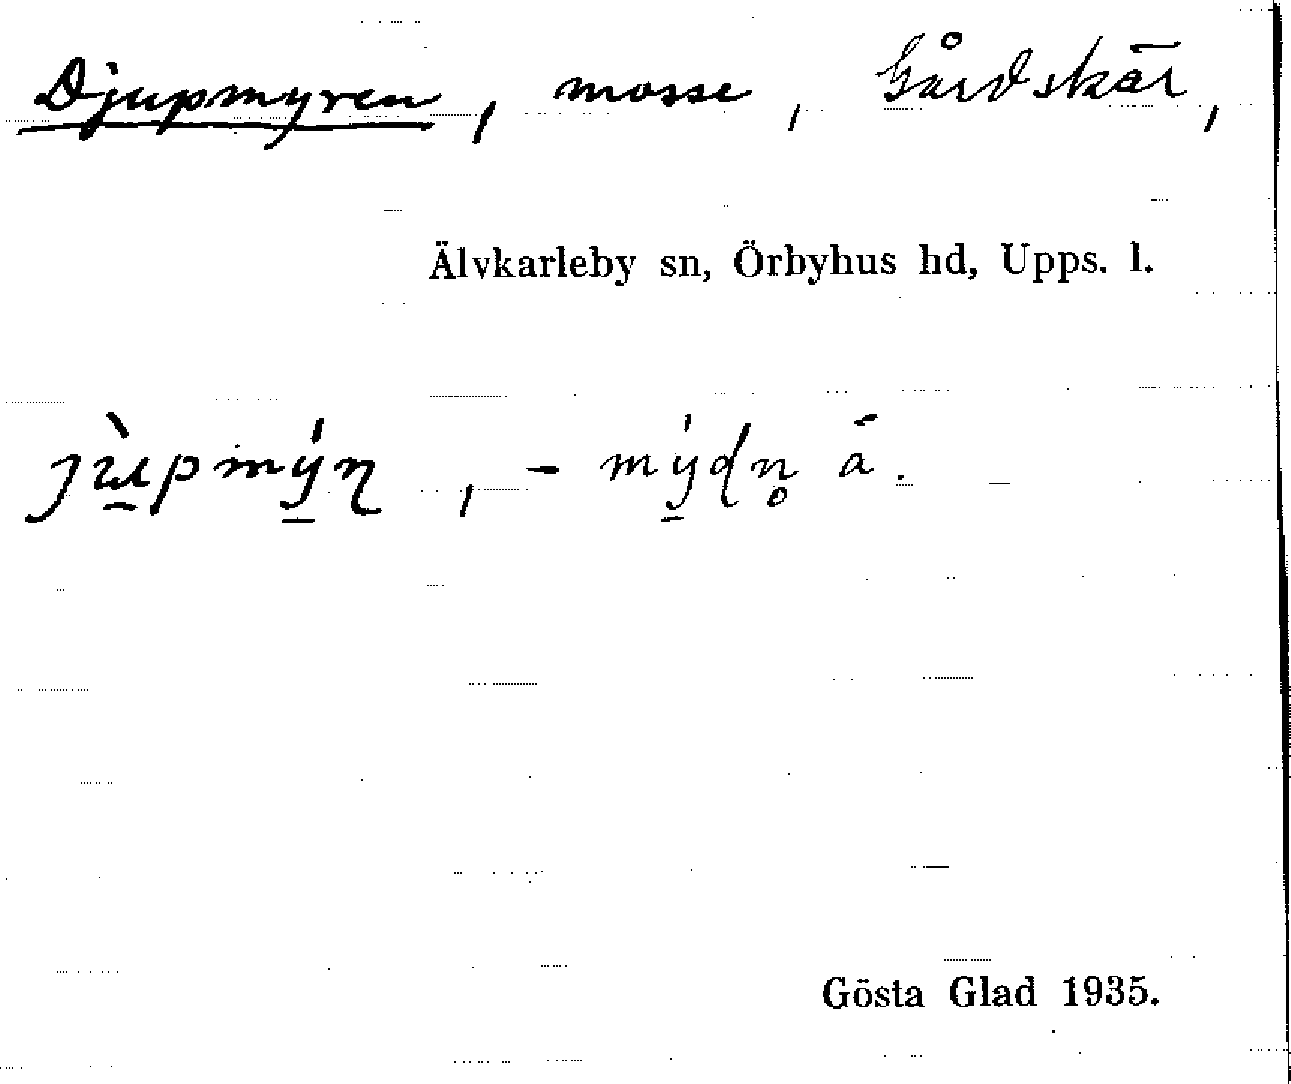 Djupmyren, mosse, Gårdskär,
Älvkarleby sn, Örbyhus hd, Upps. l.
jùpmýɳ, - mýɖn̥ ä.
Gösta Glad 1935.